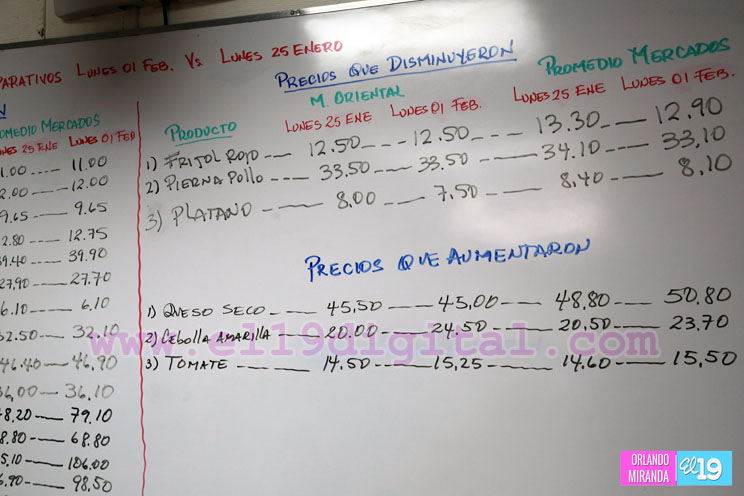 PARATIVOS LUNES 01 FEB. VS LUNES 25 ENERO
PROMEDIO MERCADOS
LUNES 25 ENE LUNES 01 FEB
1.00 ---- 11.00
2.00 --- 12.00
9.65 --- 9.65
2.80 ---- 12.75
39.40 --- 39.90
27.90 ---- 27.70
6.10 ---- 6.10
32.50 --- 32.10
46.40 -- 46.90
36,00 --- 36.10
8.20 --- 79.10
8.80 -- 68.80
5.10 --- 106.00
6.90 -- 98,50
PRECIOS QUE DISMINUYERON
M. ORIENTAL PROMEDIO MERCADOS
PRODUCTO LUNES 25 ENE LUNES 01 FEB. LUNES 25 ENE LUNES 01 FEB.
1) FRIJOL ROJO --- 12.50 --- 12.50 --- 13.30 --- 12.90
2) PIERNA POLLO --- 33.50 --- 33.50 --- 34.10 --- 33.10
3) PLATANO ---- 8.00 --- 7.50 --- 8.40 --- 8.10
PRECIOS QUE AUMENTARON
1) QUESO SECO --- 45,50 --- 45,00 --- 48.80 --- 50.80
2) CEBOLLA AMARILLA -- 20.00 --- 24.50 --- 20,50 --- 23.70
3) TOMATE ---- 14.50 --- 15,25 --- 14.60 --- 15,50
www.el19digital.com
ORLANDO
MIRANDA
El 19